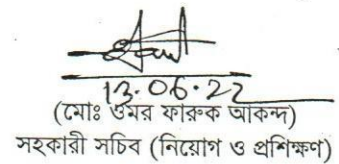 13.06.22
(মোঃ ওমর ফারুক আকন্দ)
সহকারী সচিব (নিয়োগ ও প্রশিক্ষণ)